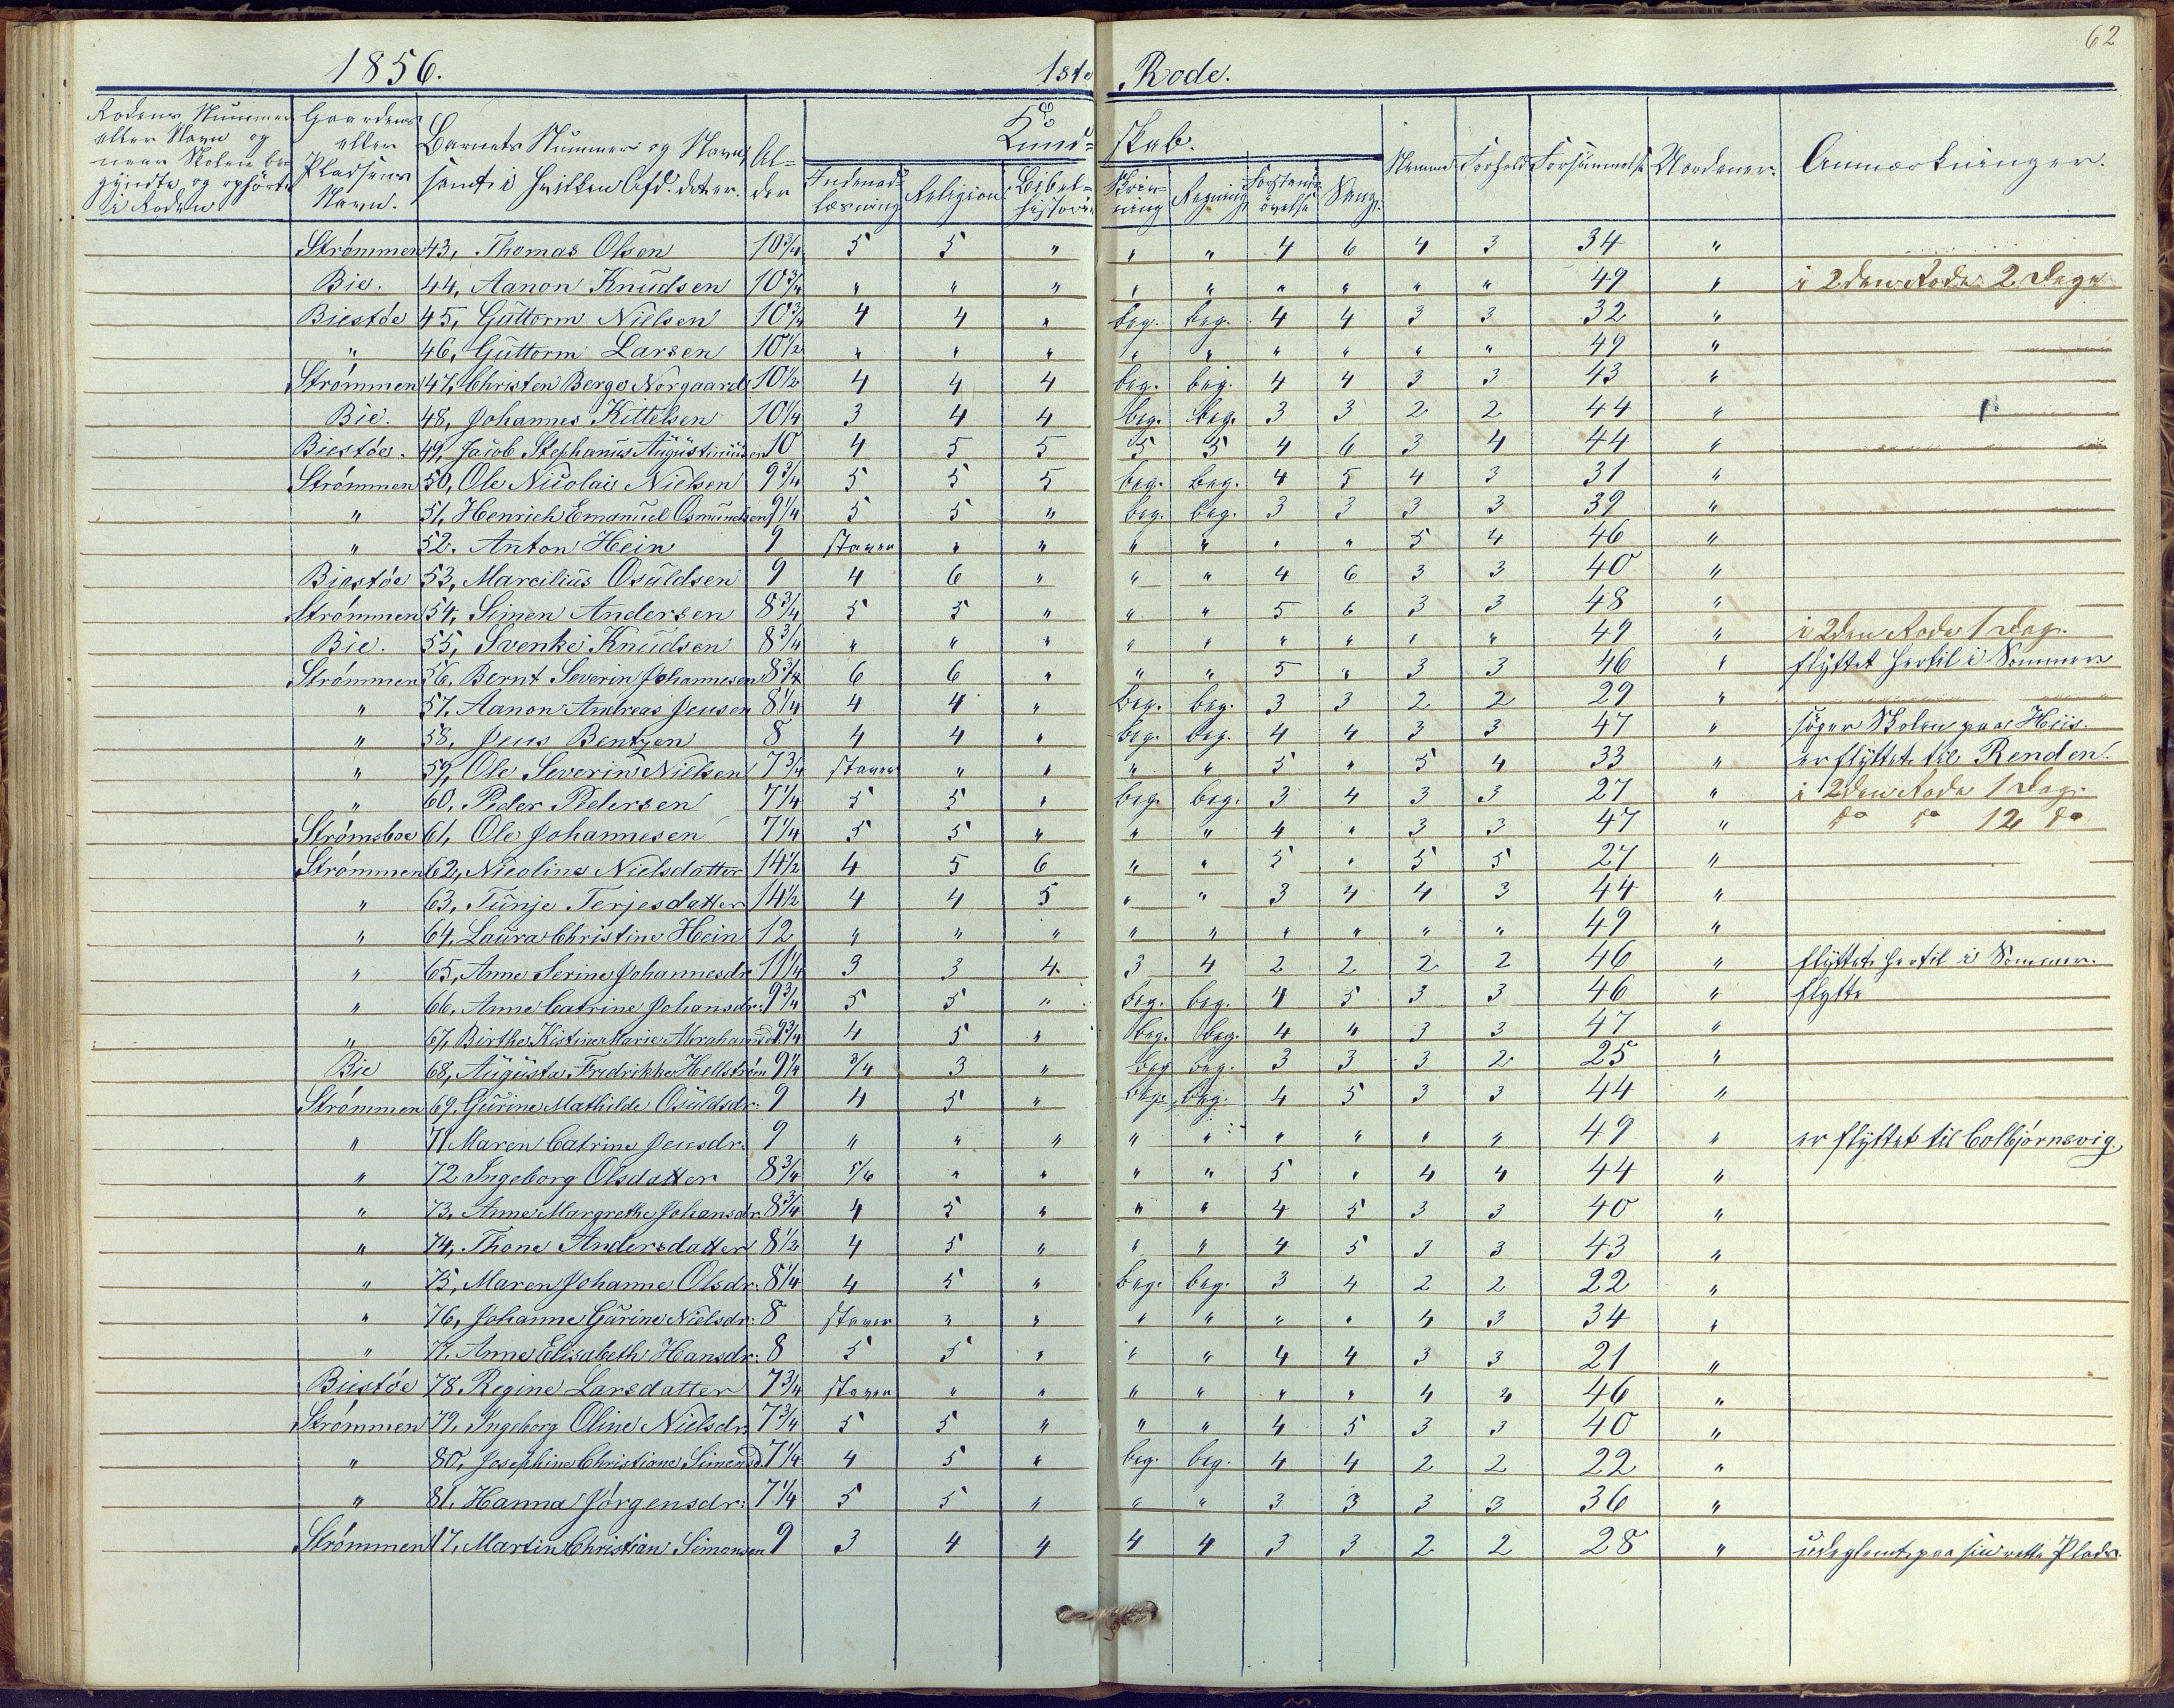 62
1856. 1ste Rode.
Rodens Nummer eller Navn og naar Skolen begyndte og ophørte i Roden
Gaardens eller Pladsens Navn.
Barnets Nummer og Navn, samt i hvilken Afd. det er.
Alder
Kundskab.
Indenadlæsning Religion Bibelhistorie Skrivning Regning Forstandsøvelse Sang.
Nemme Forhold Forsømmelse Uordener. Anmærkninger.
Strømmen 43, Thomas Olsen 10 3/4 5 5 " " " 4 6 4 3 34 "
Bie. 44, Aanon Knudsen 10 3/4 " " " " " " " " " 49 " i 2den Rode 2 Dage
Biestøe 45, Guttorm Nielsen 10 3/4 4 4 " beg. beg. 4 4 3 3 32 "
" 46, Guttorm Larsen 10 1/2 " " " " " " " " " 49 "
Strømmen 47, Christen Berge Norgaard 10 1/2 4 4 4 beg. beg. 4 4 3 3 43 "
Bie. 48, Johannes Kittelsen 10 1/4 3 4 4 beg. beg. 3 3 2 2 44 "
Biestøe. 49, Jacob Stephanus Augustinusen 10 4 5 5 5 5 4 6 3 4 44 "
Strømmen 50, Ole Nicolai Nielsen 9 3/4 5 5 5 beg. beg. 4 5 4 3 31 "
" 51, Henrich Emanuel Osmundsen 9 1/4 5 5 " beg. beg. 3 3 3 3 39 "
" 52. Anton Hein 9 staver " " " " " " 5 4 46 "
Biestøe 53, Marcilius Osuldsen 9 4 6 " " " 4 6 3 3 40 "
Strømmen 54, Simen Andersen 8 3/4 5 5 " " " 5 6 3 3 48 "
Bie. 55, Svenke Knudsen 8 3/4 " " " " " " " " " 49 " i 2den Rode 1 Dag.
Strømmen 56, Bernt Severin Johannesen 8 3/4 6 6 " " " 5 " 3 3 46 " flyttet hertil i Sommer
" 57. Aanon Andreas Jensen 8 1/4 4 4 " beg. beg. 3 3 2 2 29 "
" 58, Jens Bentzen 8 4 4 " beg. beg. 4 4 3 3 47 " søger Skolen paa Hiis.
" 59, Ole Severin Nielsen 7 3/4 staver " " " " 5 " 5 4 33 " er flyttet til Renden.
" 60, Peder Pedersen 7 1/4 5 5 " beg. beg. 3 4 3 3 27 " i 2den Rode 1 Dag.
Strømsboe 61, Ole Johannesen 7 1/4 5 5 " " " 4 " 3 3 47 " do do 12 do
Strømmen 62, Nicoline Nielsdatter 14 1/2 4 5 6 " " 5 " 5 5 27 "
" 63, Tunje Terjesdatter 14 1/2 4 4 5 " " 3 4 4 3 44 "
" 64, Laura Christine Hein 12 " " " " " " " " " 49 "
" 65, Anne Serine Johannesdr. 11 1/4 3 3 4 3 4 2 2 2 2 46 " flyttet hertil i Sommer.
" 66, Anne Catrine Johansdr. 9 3/4 5 5 " beg. beg. 4 5 3 3 46 " flytte
" 67, Birthe Kistine Marie Abrahamsd. 9 3/4 4 5 " beg. beg. 4 4 3 3 47 "
Bie 68, Augusta Fredrikke Hellstrøm 9 1/4 3/4 3 " beg beg. 3 3 3 2 25 "
Strømmen 69, Gurine Mathilde Osuldsdr: 9 4 5 " beg. beg. 4 5 3 3 44 "
" 71 Maren Catrine Jensdr. 9 " " " " " " " " " 49 " er flyttet til Colbjørnsvig.
" 72 Ingeborg Olsdatter 8 3/4 5/6 " " " " 5 " 4 4 44 "
" 73, Anne Margrethe Johansdr. 8 3/4 4 5 " " " 4 5 3 3 40 "
" 74, Thone Andersdatter 8 1/2 4 5 " " " 4 5 3 3 43 "
" 75, Maren Johanne Olsdr: 8 1/4 4 5 " beg. beg. 3 4 2 2 22 "
" 76, Johanne Gurine Nielsdr: 8 staver " " " " " " 4 3 34 "
" 77. Anne Elisabeth Hansdr: 8 5 5 " " " 4 4 3 3 21 "
Biestøe 78. Regine Larsdatter 7 3/4 staver " " " " " " 4 4 46 "
Strømmen 79, Ingeborg Oline Nielsdr. 7 3/4 5 5 " " " 4 5 3 3 40 "
" 80, Josephine Christiane Simensd. 7 1/4 4 5 " beg. beg. 4 4 2 2 22 "
" 81. Hanna Jørgensdr: 7 1/4 5 5 " " " 3 3 3 3 36 "
Strømmen 17, Martin Christian Simonsen 9 3 4 4 4 4 3 3 2 2 28 " udeglemt paa sin rette Plads.